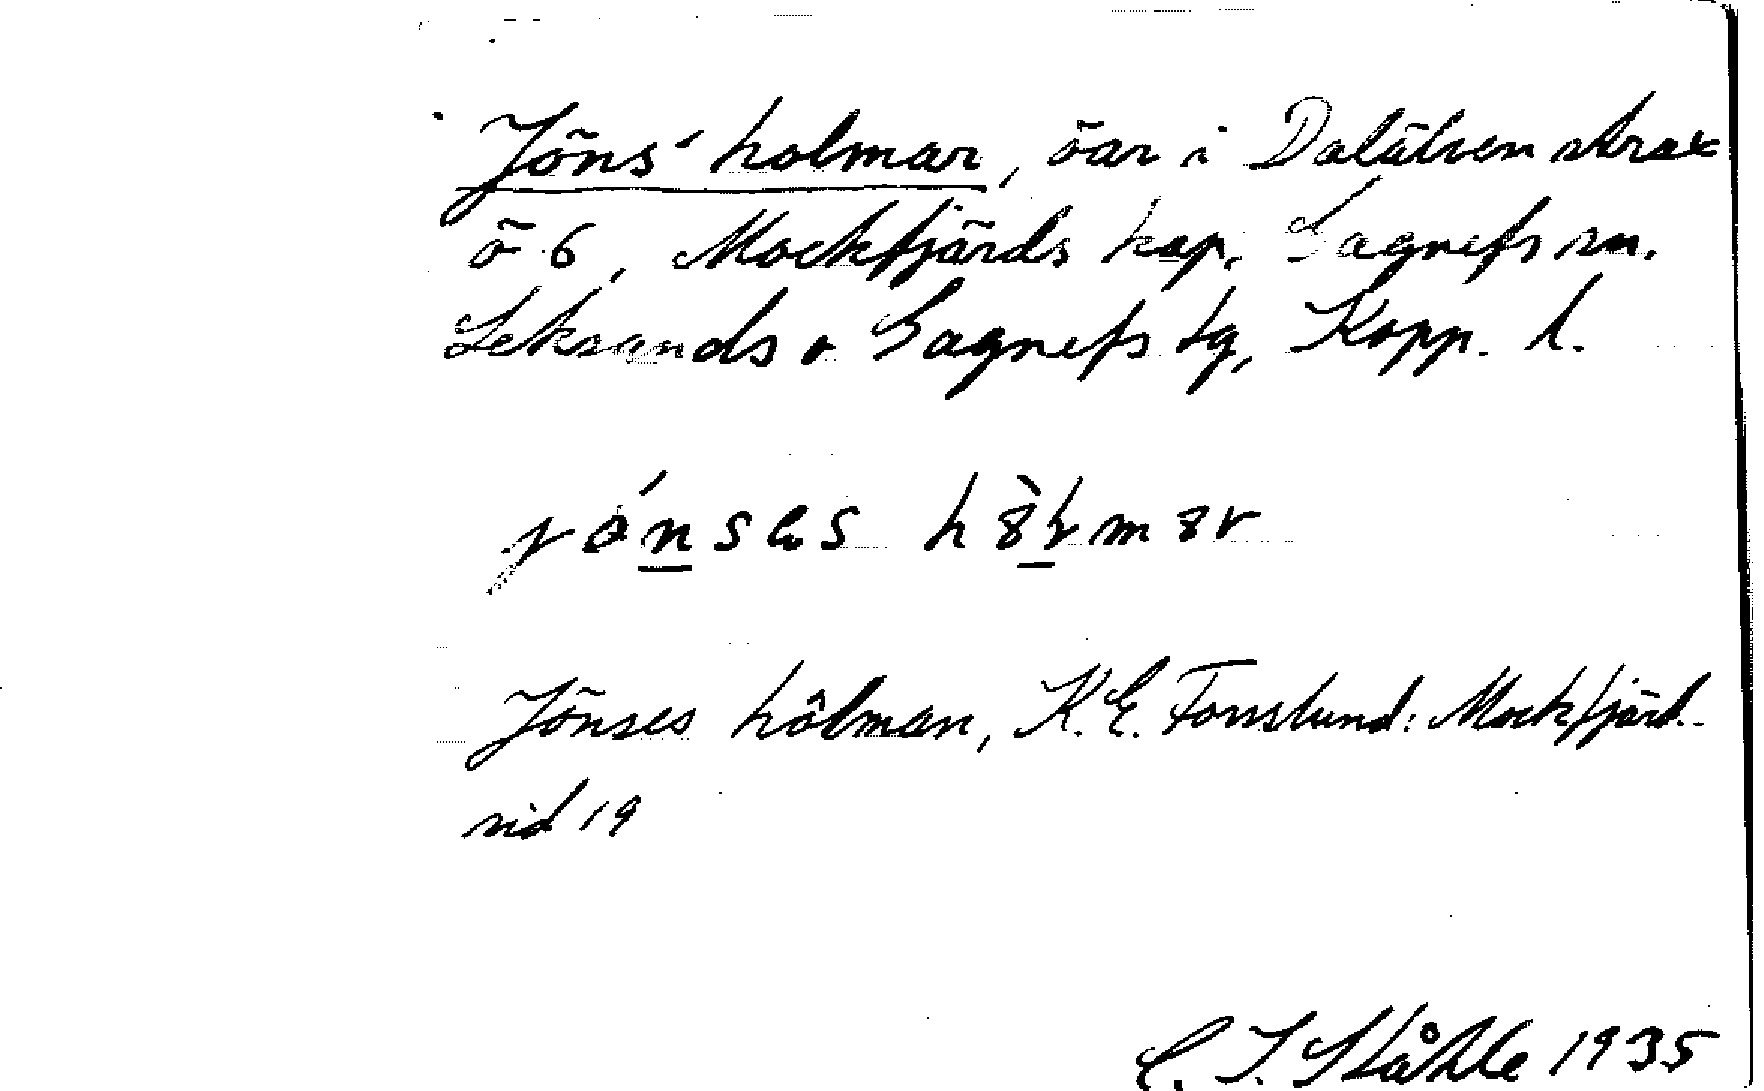 Jöns' holmar, öar i Dalälven strax
ö 6, Mockfjärds kap. Gagnefs sn.
Leksands o Gagnefs tg, Kopp. l.
hò̱ɫmar
Jönses hôlman, K.E. Forsslund: Mockfjärd
sid 19
C. I. Ståhle 1935